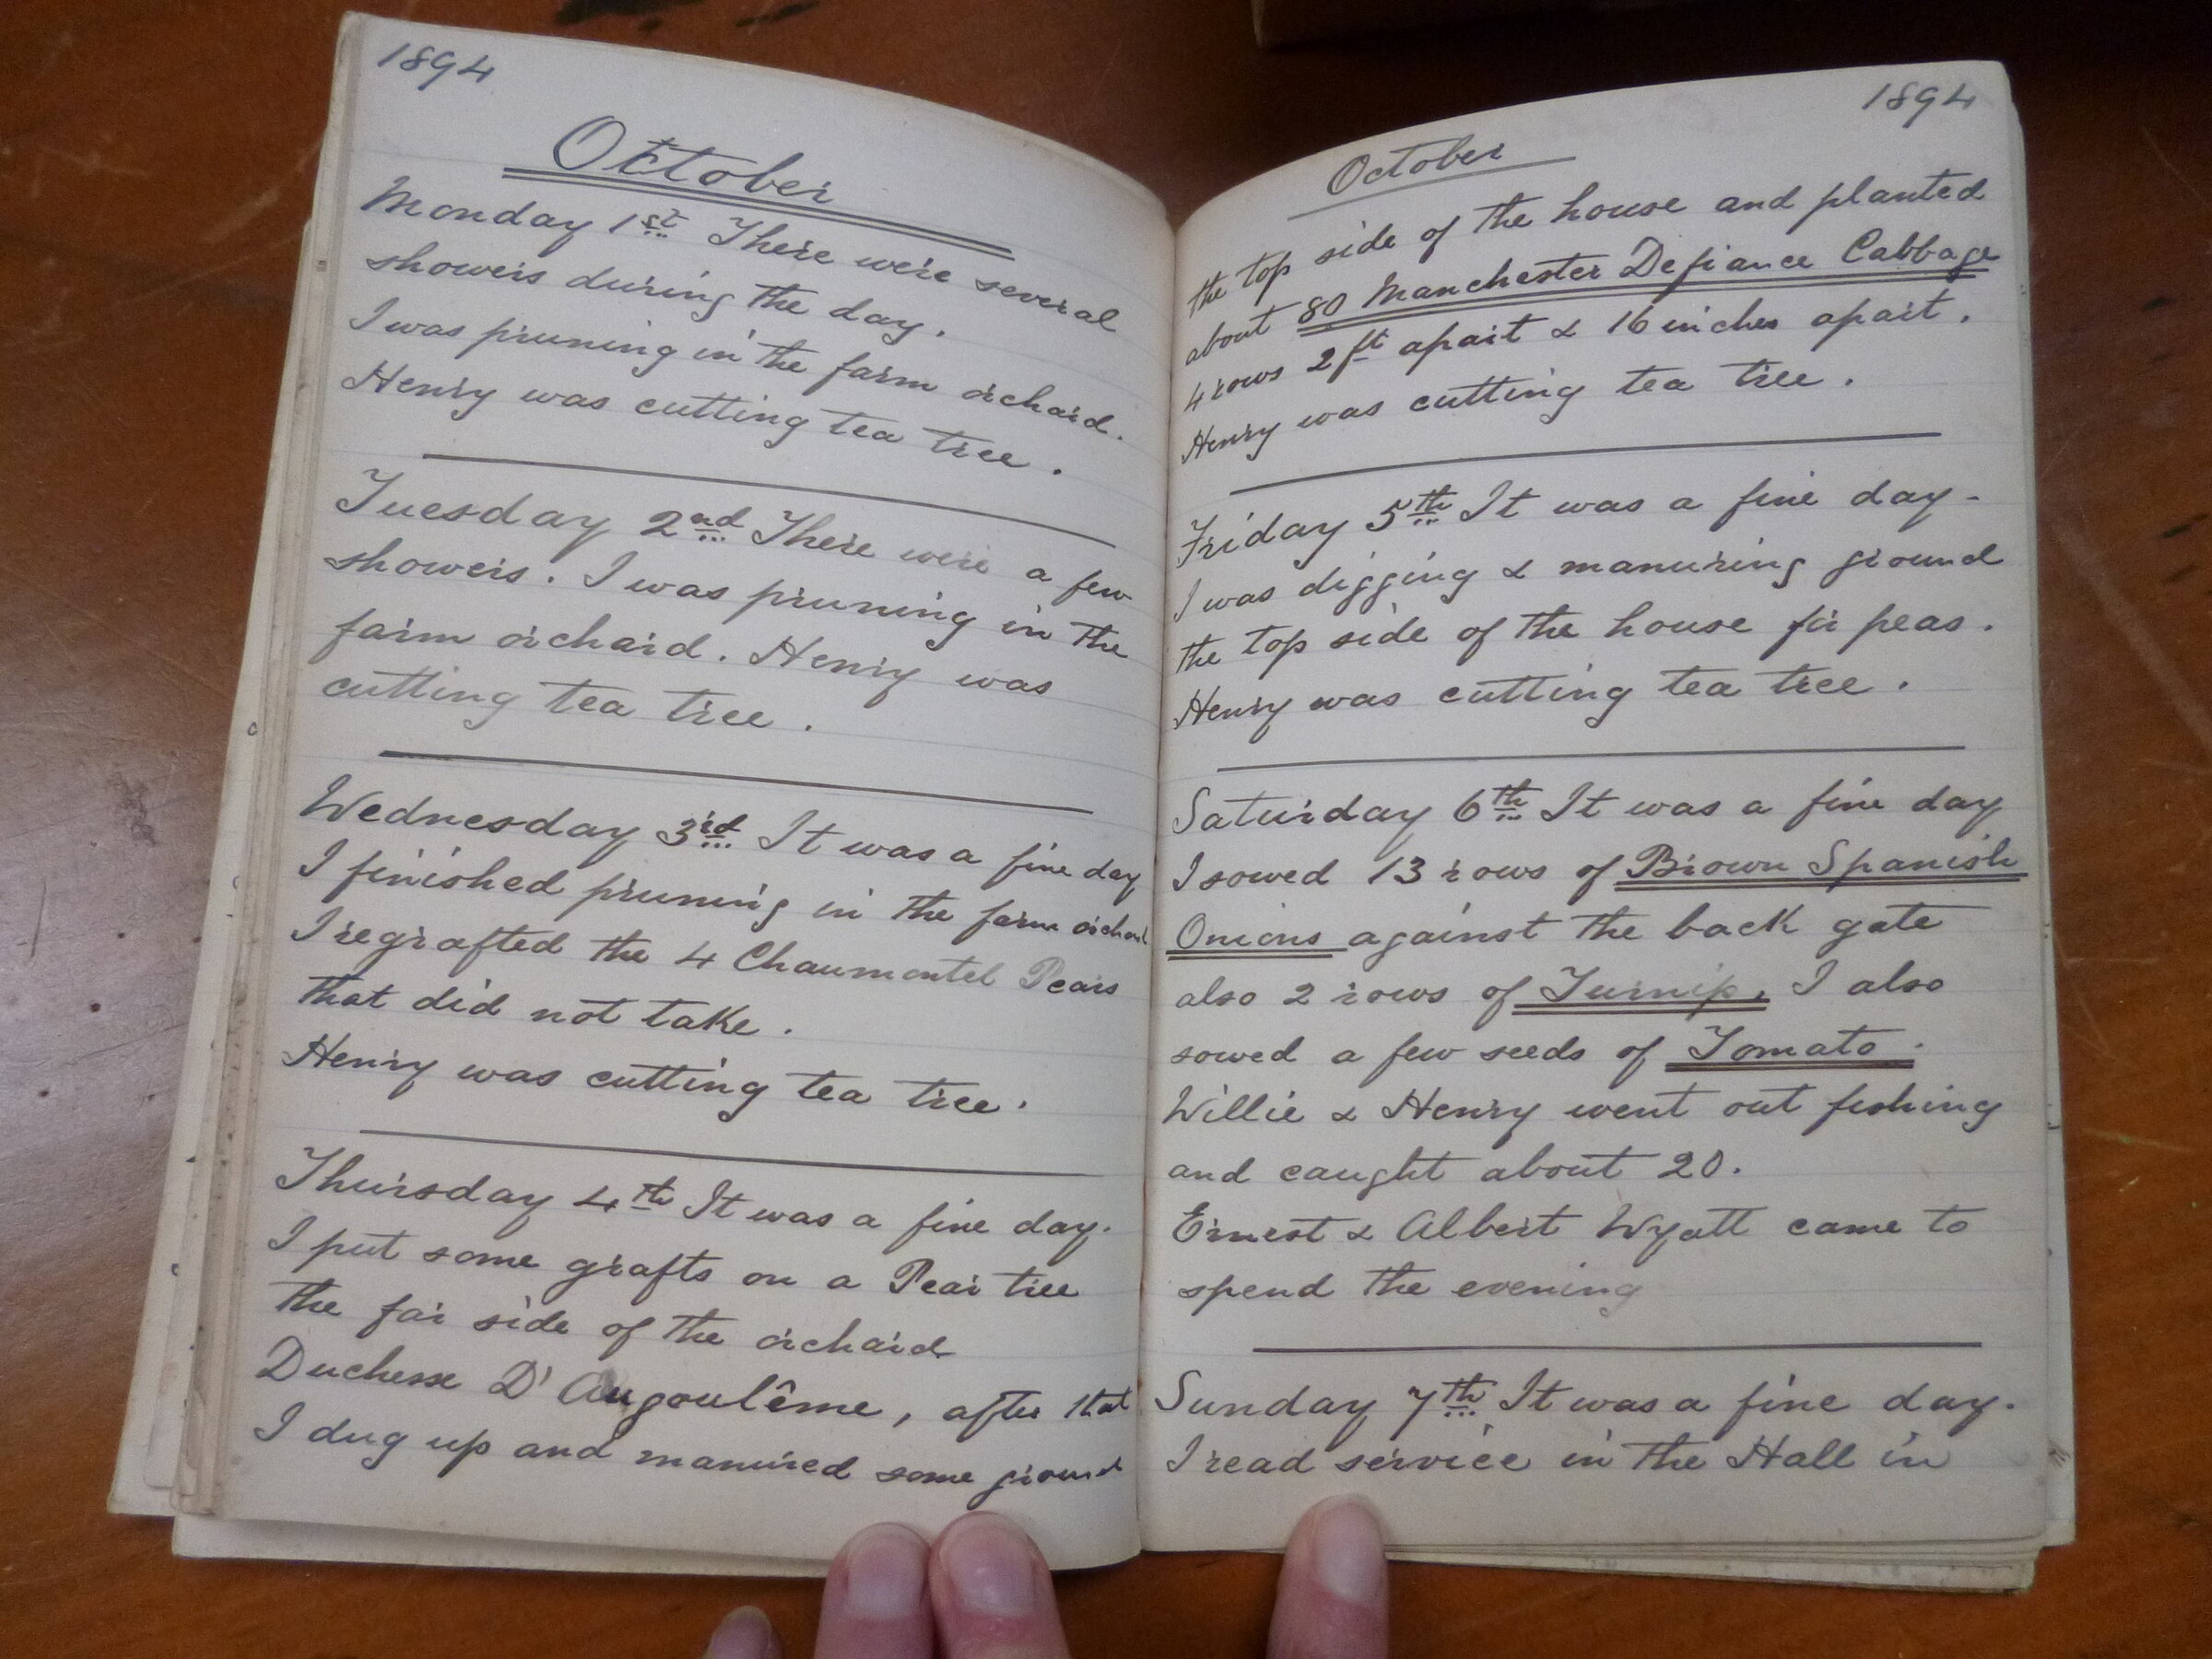 1894
October
Monday 1st There were several
showers during the day.
I was pruning in the farm orchard.
Henry was cutting tea tree.
Tuesday 2nd There were a few
showers. I was pruning in the
farm orchard. Henry was
cutting tea tree.
Wednesday 3rd It was a fine day
I finished pruning in the farm orchard
I regrafted the 4 Chaumontel Pears
that did not take.
Henry was cutting tea tree.
Thursday 4th It was a fine day.
I put some grafts on a Pear tree
the far side of the orchard
Duchesse D' Augoulême, after that
I dug up and manured some ground
1894
October
the top side of the house and planted
about 80 Manchester Defiance Cabbage
4 rows 2ft apart & 16 inches apart.
Henry was cutting tea tree.
Friday 5th It was a fine day-
I was digging & manuring ground
the top side of the house for peas.
Henry was cutting tea tree.
Saturday 6th It was a fine day
I sowed 13 rows of Brown Spanish
Onions against the back gate
also 2 rows of Turnip, I also
sowed a few seeds of Tomato.
Willie & Henry went out fishing
and caught about 20.
Ernest & Albert Wyatt came to
spend the evening
Sunday 7th It was a fine day.
I read service in the Hall in